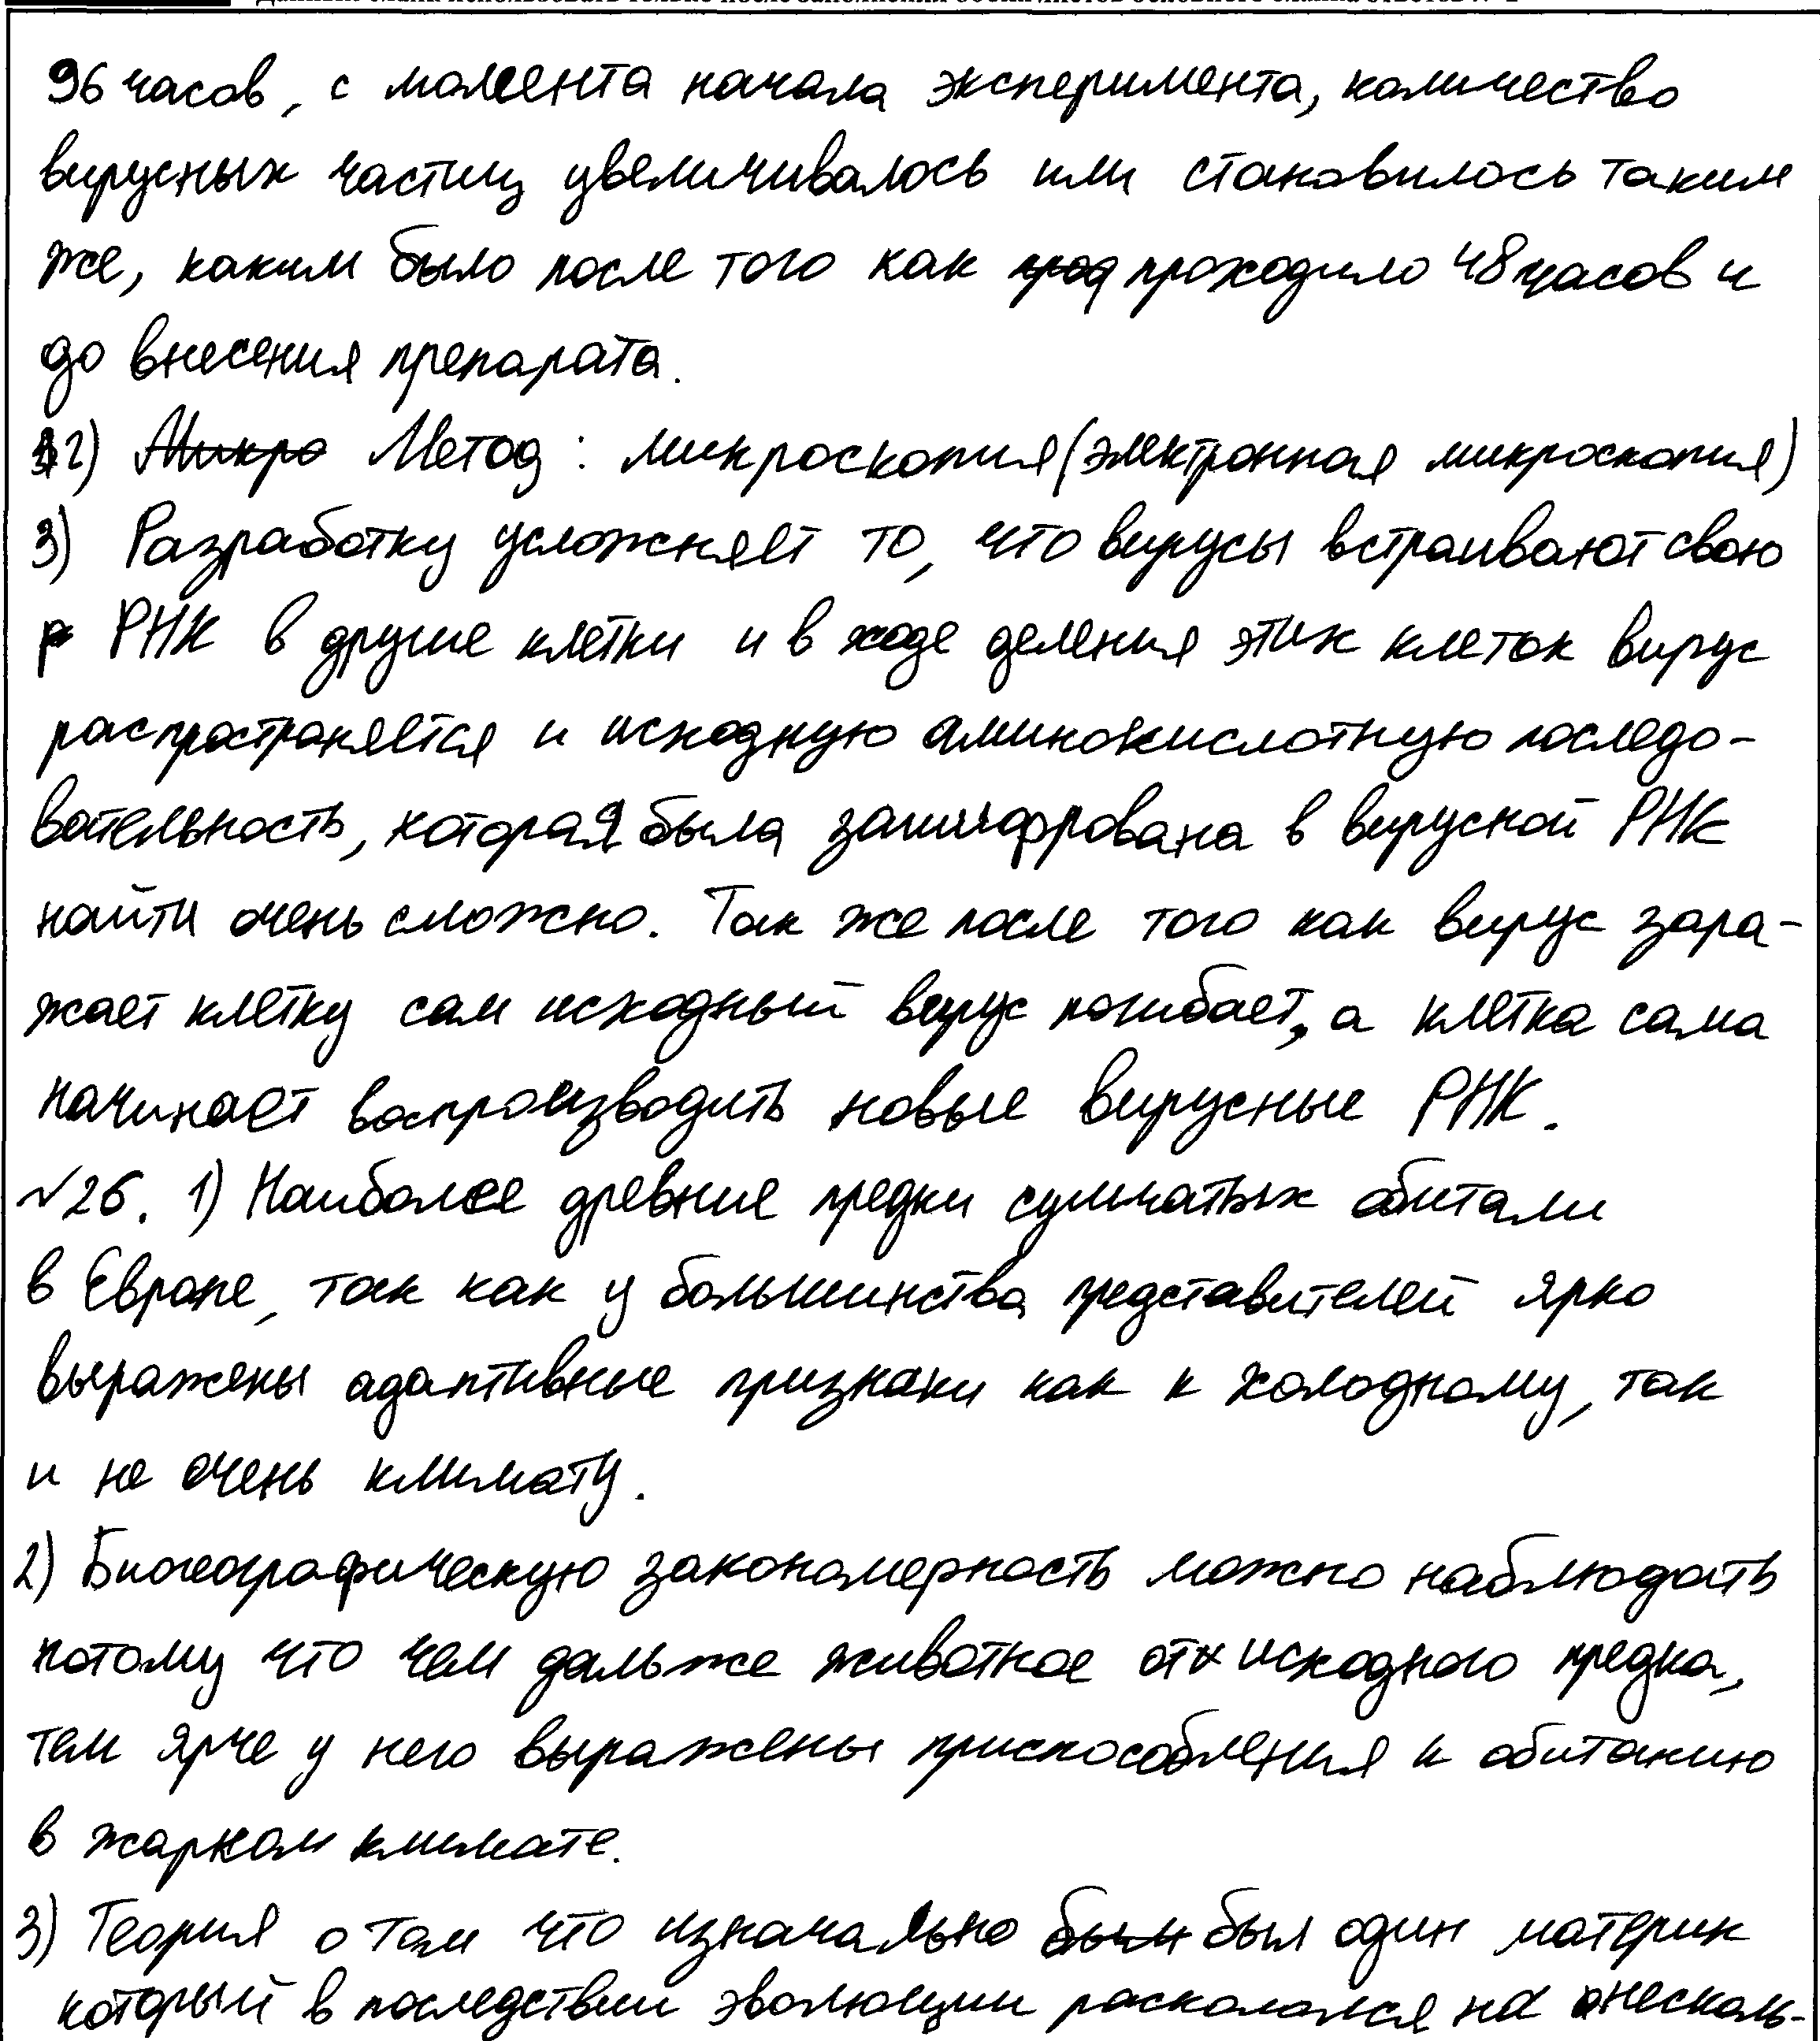 96 часов, с момента начала эксперимента, количество
вирусных частиц увеличивалось или становилось таким
же, каким было после того как прод проходило 48 часов и
до внесения препарата.
2) Микро Метод: микроскопия (электронная микроскопия)
3) Разработку усложняет то, что вирусы встраивают свою
р РНК в другие клетки и в ходе деления этих клеток вирус
распространяется и исходную аминокислотную последо-
вательность, которая была зашифрована в вирусной РНК
найти очень сложно. Так же после того как вирус зара-
жает клетку сам исходный вирус погибает, а клетка сама
начинает воспроизводить новые вирусные РНК.
№26. 1) Наиболее древние предки сумчатых обитали
в Европе, так как у большинства представителей ярко
выражены адаптивные признаки как к холодному, так
и не очень климату.
2) Биогеографическую закономерность можно наблюдать
потому что чем дальже животное от исходного предка,
тем ярче у него выражены приспособления к обитанию
в жарком климате.
3) Теория о том что изначально были был один материк
который в последствии эволюции раскололся на несколь-